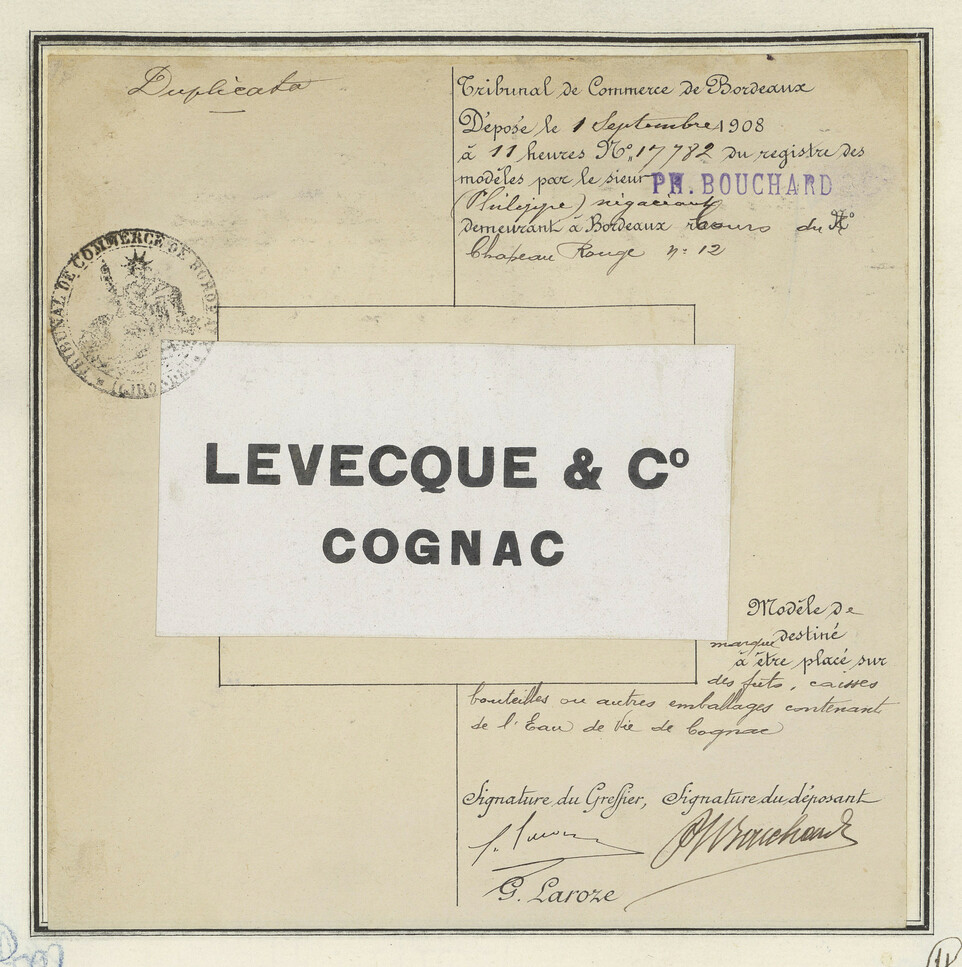 Duplicata
Tribunal de Commerce de Bordeaux
Déposé le 1 Septembre 1908
à 11 heures Nº 17782 du registre des
modèles par le sieur PH. BOUCHARD
(Philippe) négociant
demeurant à Bordeaux Cours du
Chapeau Rouge nº 12
TRIBUNAL DE COMMERCE DE BORDEAUX
(GIRONDE)
LEVECQUE & Cº
COGNAC
Modèle de
marque destiné
à être placé sur
des futs, caisses
bouteilles ou autres emballages contenant
de l'Eau de Vie de Cognac
Signature du Greffier, Signature du déposant
PhBouchard
G. Laroze